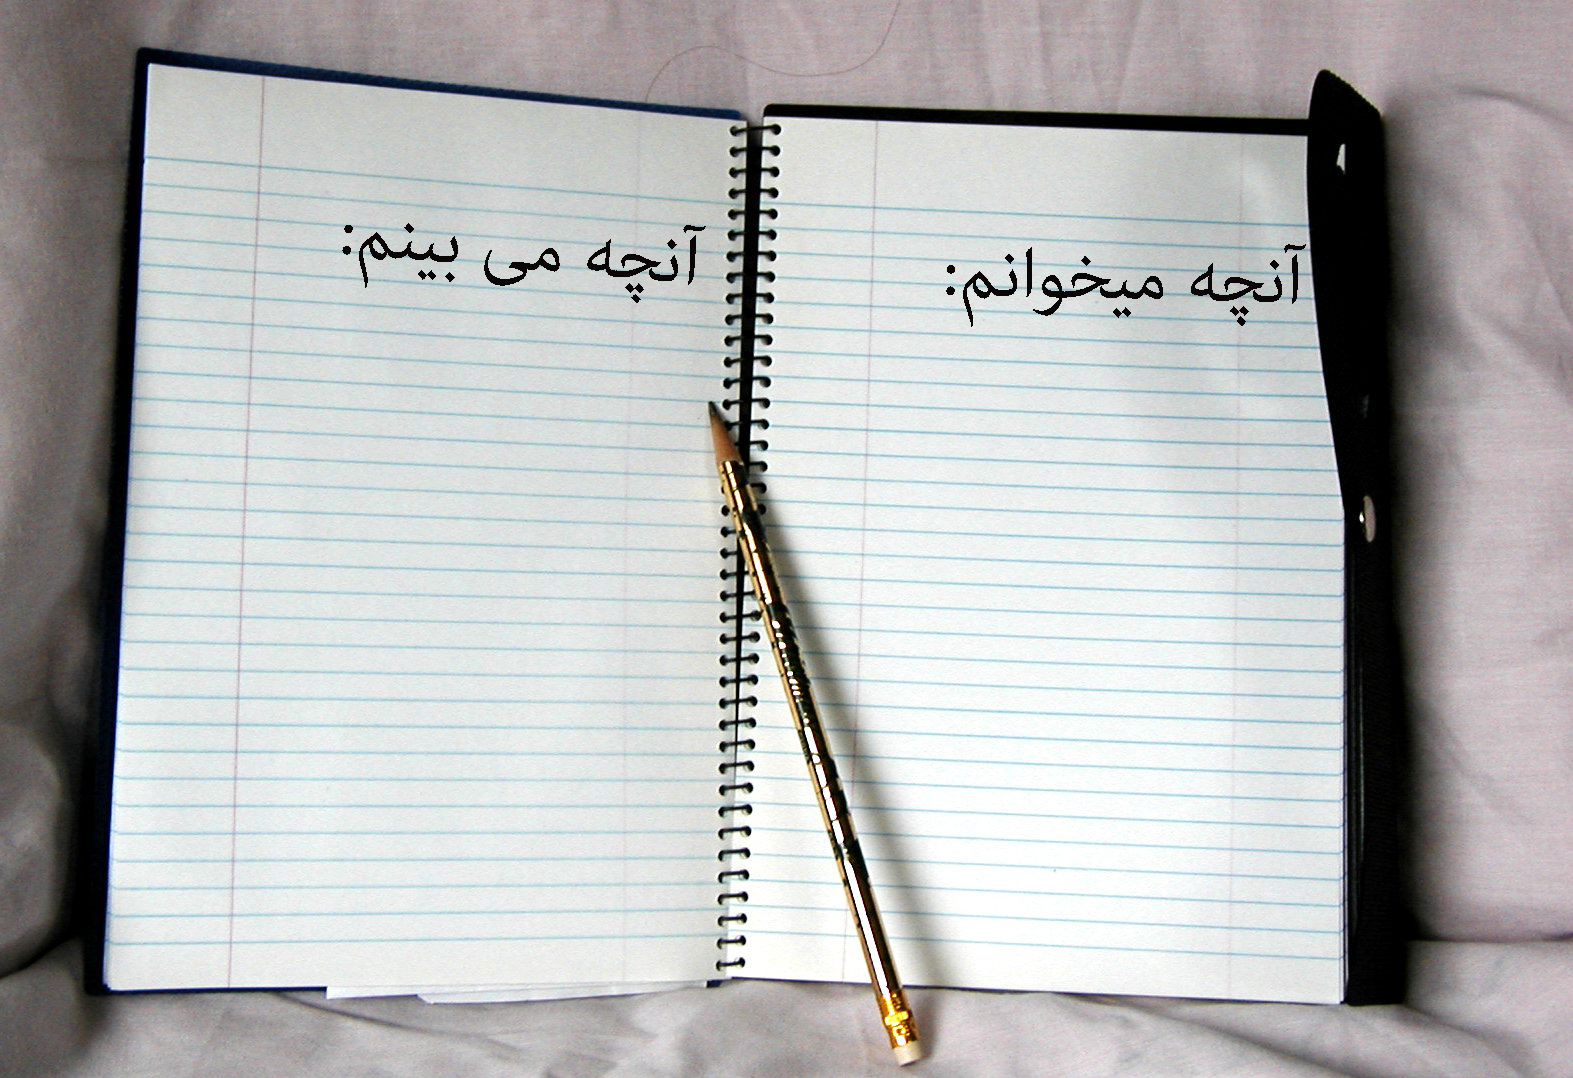 آنچه میخوانم:
آنچه می بینم: